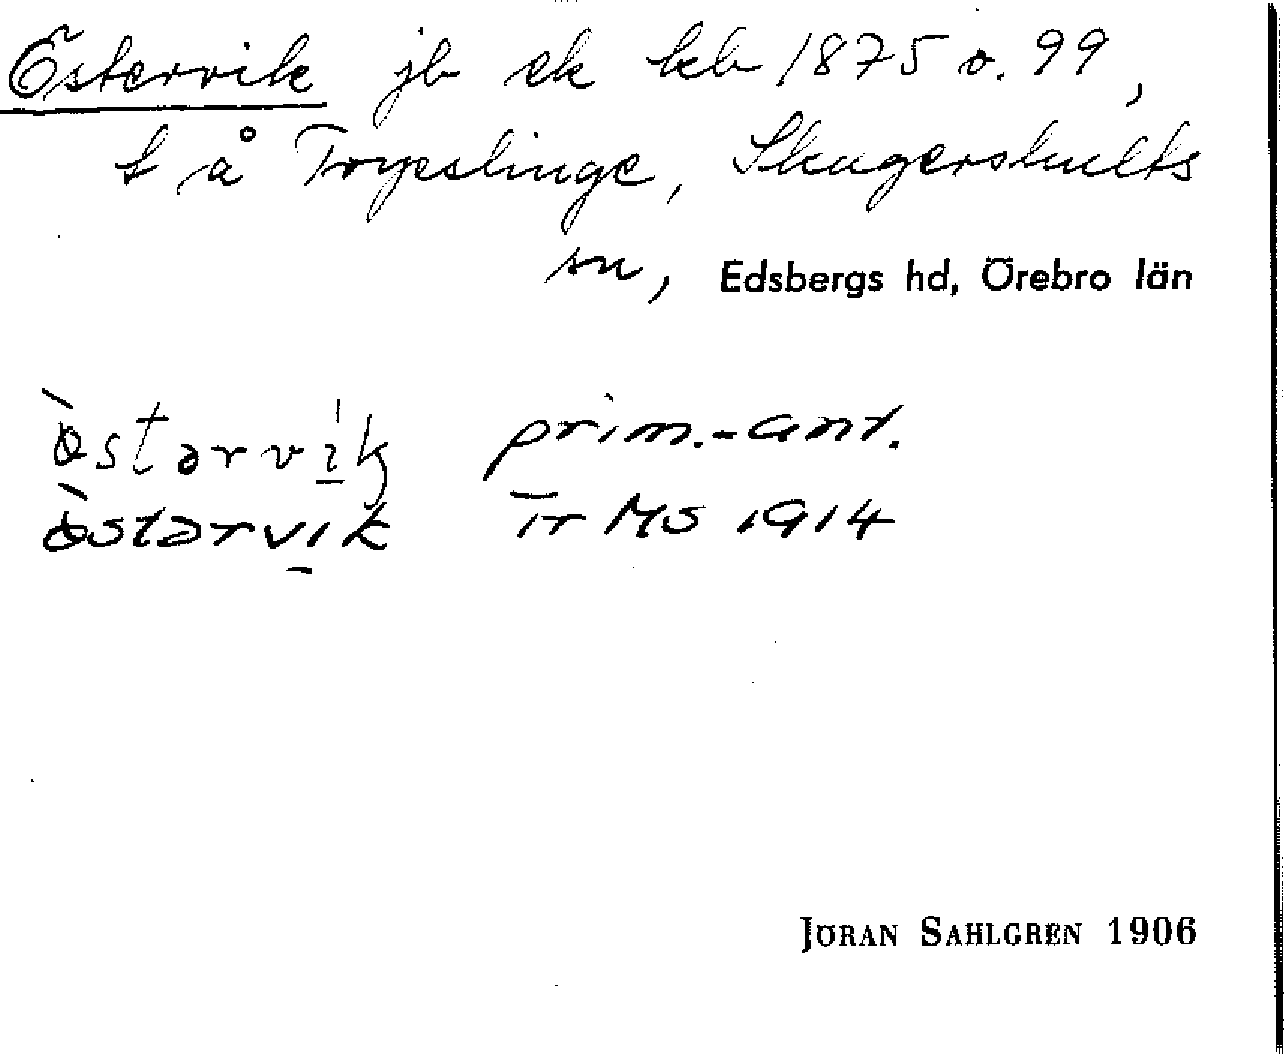 Östervik jb ek kb 1875 o. 99,
t å Trysslinge, Skagershults
sn, Edsbergs hd, Örebro län
ö̀stərvik prim.-ant.
ö̀stərvik Tr MS 1914
JÖRAN SAHLGREN 1906